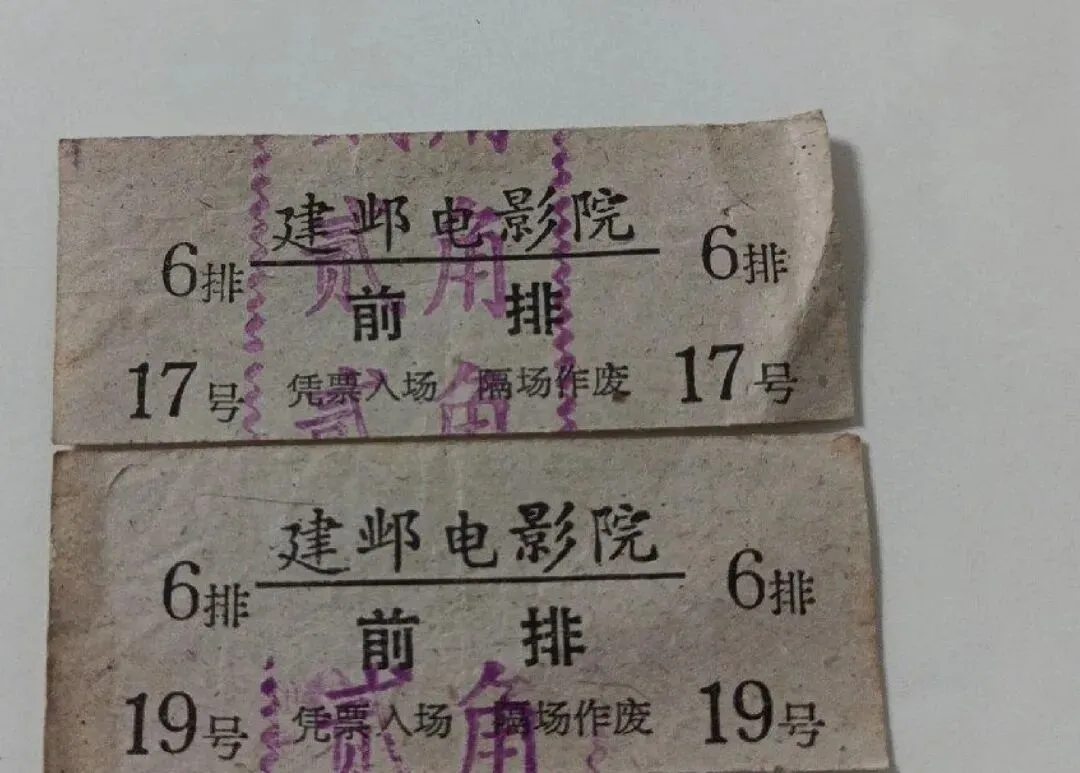 贰角
建邺电影院
6排 6排
贰角
前排
17号 17号
凭票入场 隔场作废
贰角
建邺电影院
6排 6排
前排
19号 19号
凭票入场 隔场作废
贰角